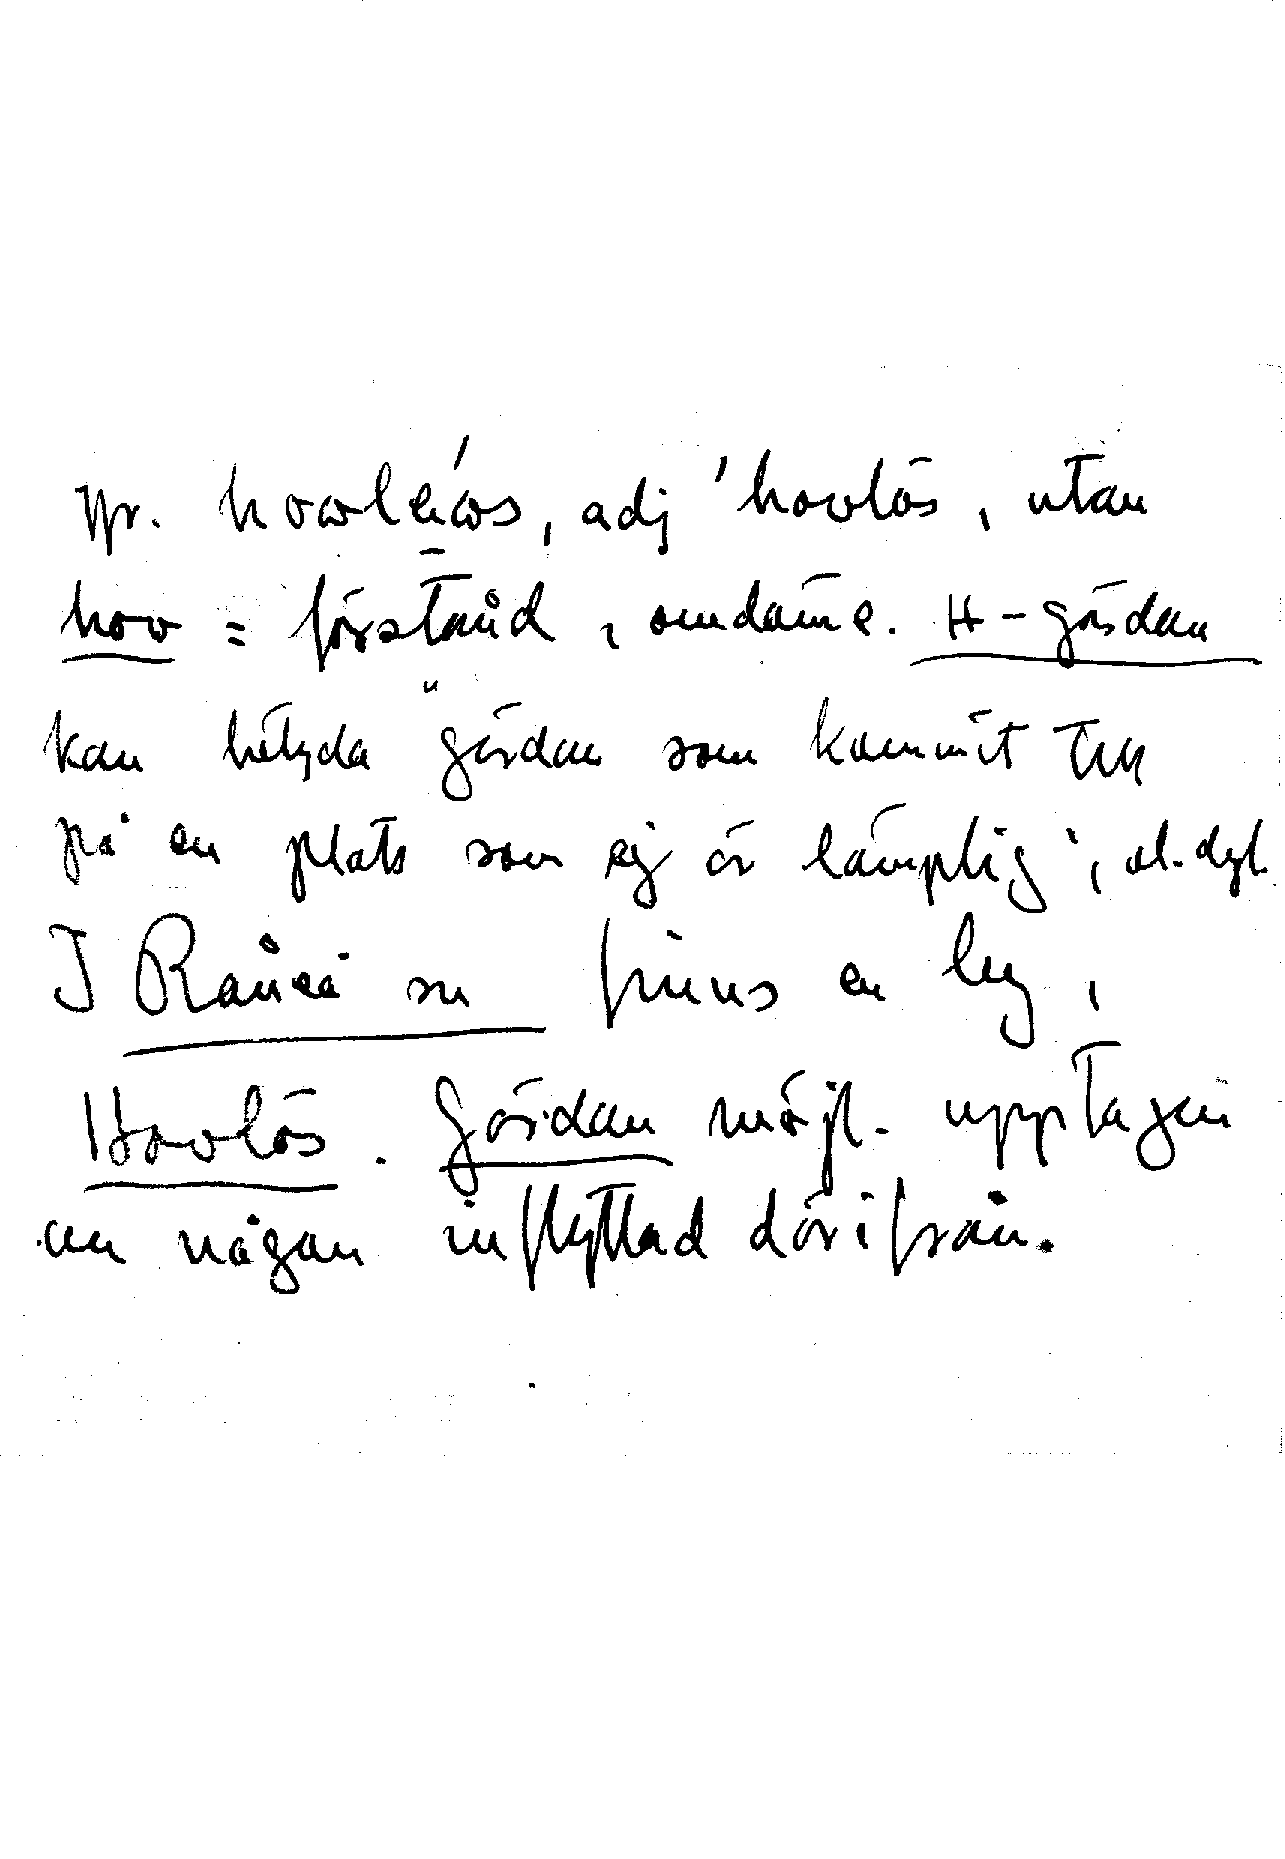 Jfr. howlẹ́ws, adj 'hovlös, utan
hov = förstånd, omdöme. H-gärdan
kan betyda "gärdan som kommit till
på en plats som ej är lämplig", el. dyl.
I Råneå sn finns en by,
Hovlös. Gärdan möjl. upptagen
av någon inflyttad därifrån.